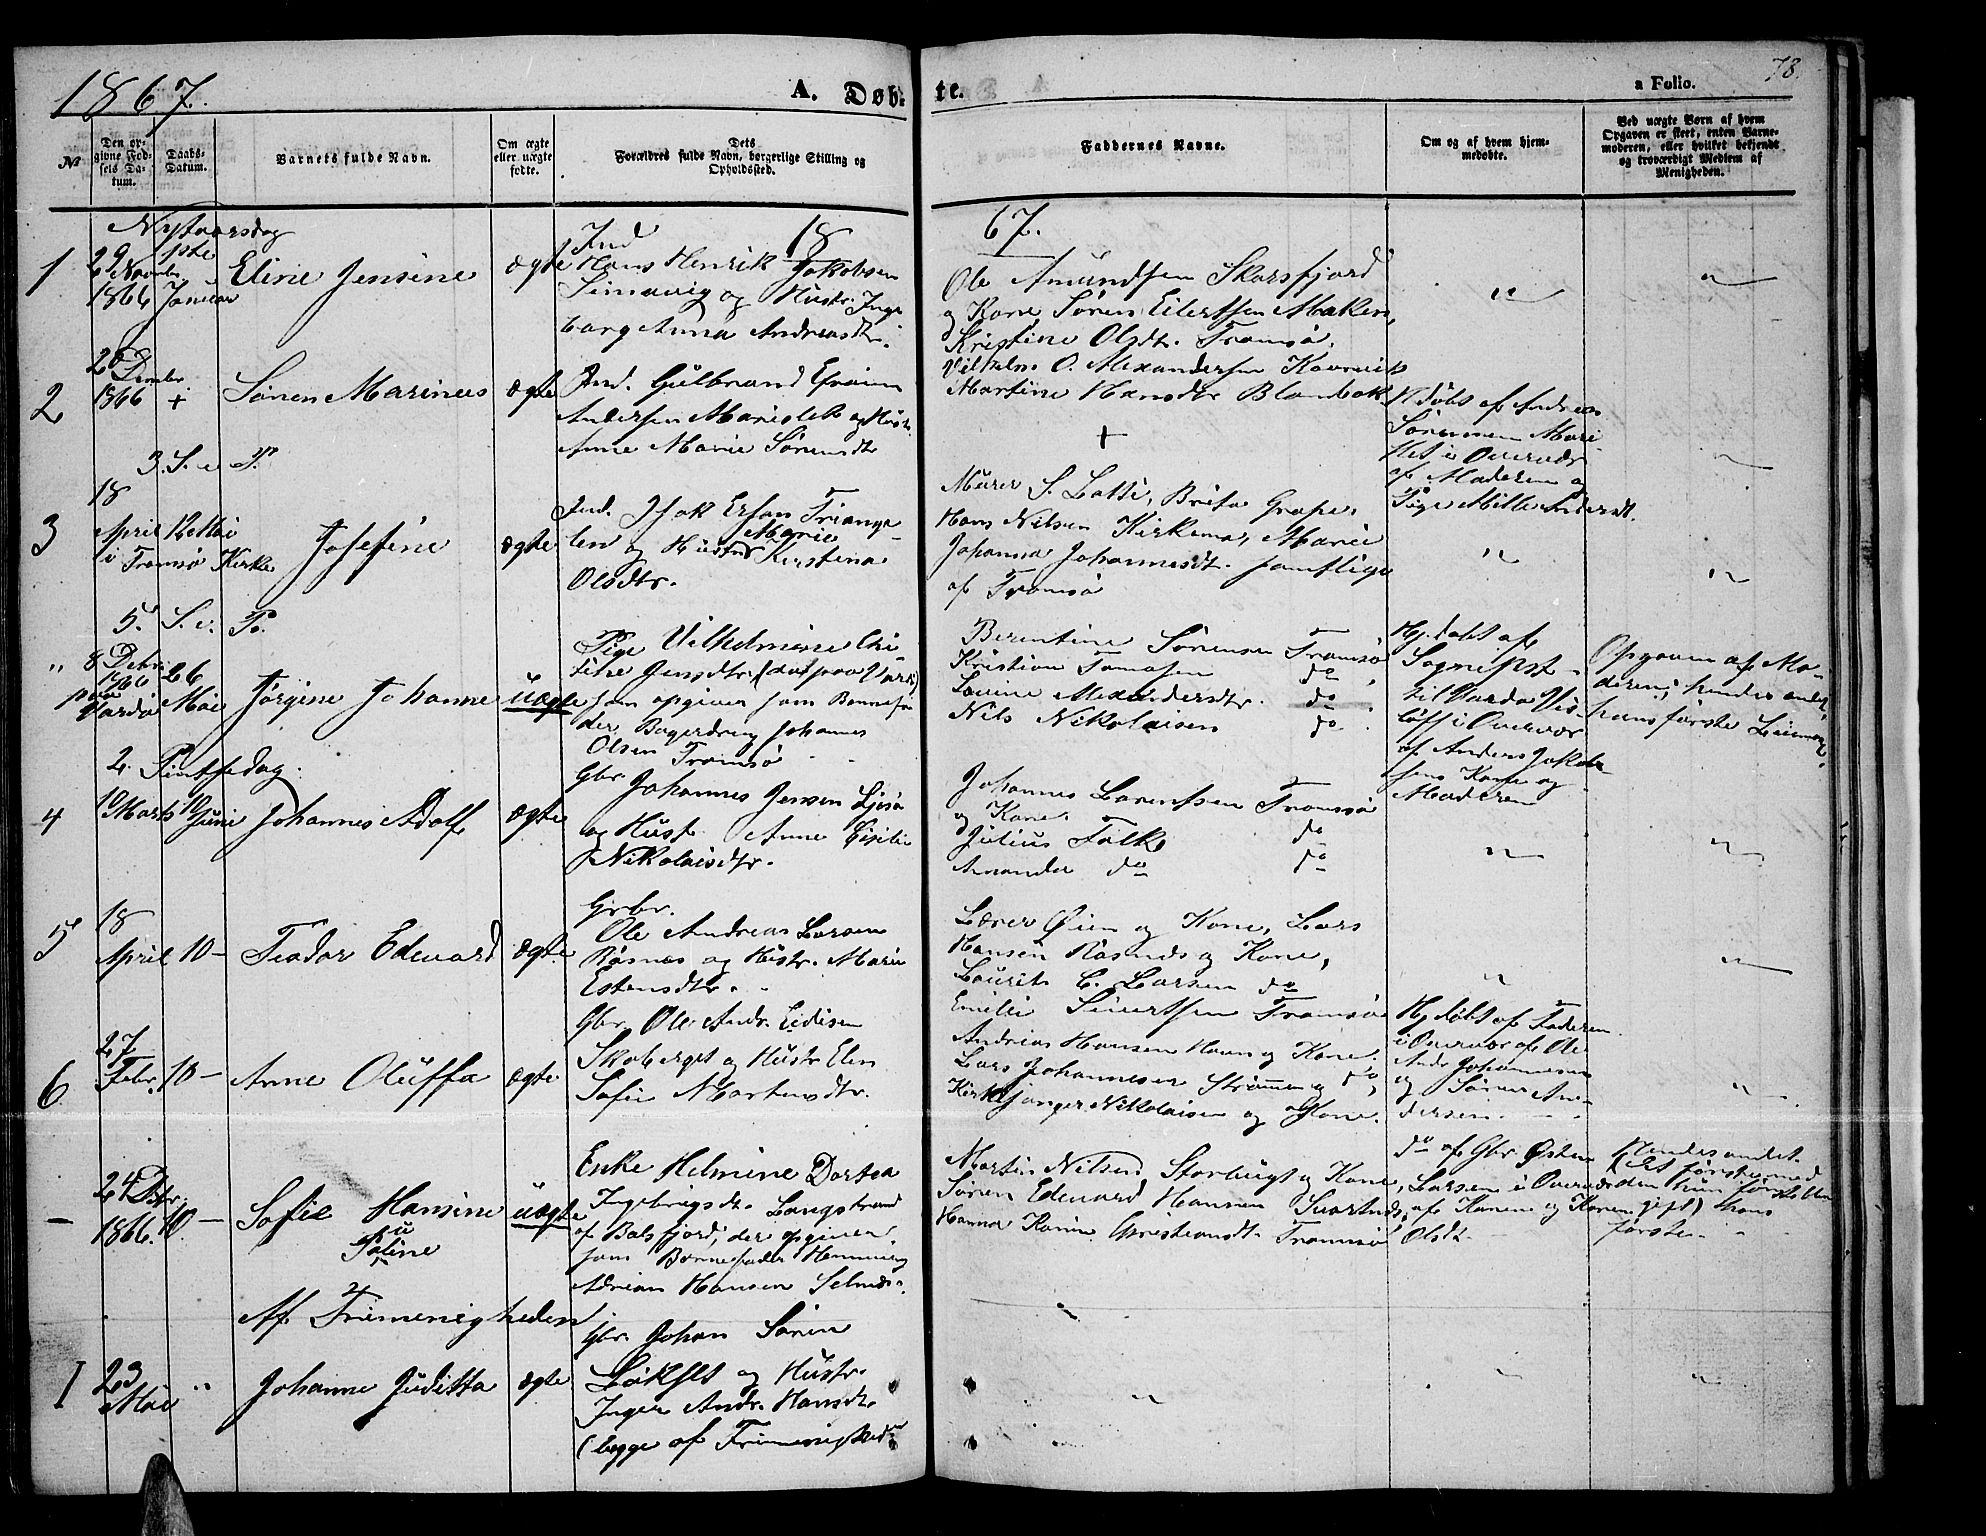 1867.
A. Døb-
te.
a Folio.
78.
№
Den op-
givne Fød-
sels Da-
tum.
Daabs-
Datum.
Barnets fulde Navn.
Om ægte
eller uægte
fødte.
Dets
Forældres fulde Navn, borgerlige Stilling og
Opholdssted.
Faddernes Navne.
Om og af hvem hjem-
medøbte.
Ved uægte Børn af hvem
Opgaven er skeet, enten Barne-
moderen, eller hvilket bekjendt
og troværdigt Medlem af
Menigheden.
Nytaarsdag
1
29
Novbr
1866
1ste
Januar
Eline Jensine
ægte
Ind
18
Hans Henrik Jakobsen
Simavig og Hustr. Inge
borg Anna Andreasdtr.
67.
Ole Amundsen Skarsfjord
og Kone Søren Eilertsen
Kristine Olsdtr. Tromsø,
Vilhelm O. Alexandersen
"
"
2
Dcmbr
1866
+
Sören Marinus
ægte
Ind. Gulbrand Efraim
Andersen og Hustr.
Anne Marie Sörensdtr
Martine Hansdtr
+
Hj.döbt af Andreas
Sörensen
i Overvær
af Moderen og
Pige Mille Andersdt.
3. S. e. P.
3
18
April
12 Mai
i Tromsø Kirke
Josefine
ægte
Ind. Isak Ersan
og Hustr Marie Kirstina
Olsdtr.
Murer S. Latti, Brita Grape,
Hans Nilsen Kirkemo, Marie
Johanna Johannesdt. samtlige
af Tromsø
"
"
5. S. e. P.
"
8 Debr.
1866
paa
Vardø
26
Mai
Jörgine Johanne
uægte
Pige Vilhelmine
Jensdtr.
som opgiver som Barnefa
der Bagerdreng Johannes
Olsen Tromsø
Berentine Sörensen Tromsø
Kristian Tomasen do
Lovine Alexandersdtr. do
Nils Nikolaisen do
Hj. döbt af
Sognepræst
til Vardø
i Overvær
af Anders Jakob-
sens Kone og
Moderen
Opgaven af Mo-
deren; hendes andet,
hans første Leiermaal.
2. Pintsedag.
4
10
Marts
10
Juni
Johannes Adolf
ægte
Gbr. Johannes Jensen
og Hust. Anne
Nikolaisdtr.
Johannes Lorentsen Tromsø
og Kone do
Julius Falk do
Amanda do
"
"
5
18
April
10 -
Teodor Edevard
ægte
Gbr.
Ole Andreas Larsen
Risnes og Hustr. Marie
Estensdtr.
Lærer Øien og Kone, Lars
Hansen Risnes og Kone,
Laurits C. Larsen do
Emilie Sivertsen Tromsø
"
"
6
27
Febr.
10 -
Anne Oluffa
ægte
Gbr. Ole Andr. Eidisen
Skoberget og Hustr Elen
Sofie Mortensdtr.
Andrias Hansen Havn og Kone.
Lars Johannesen Strømmen og do,
Kirkesanger Nikolaisen og Kone.
Hj.döbt af Faderen
i Overvær af Ole
Andr Johannesen
og Sören An-
dersen.
"
-
24 Dcbr
1866.
10 -
Sofie Hansine
Paline
uægte
Enke Helmine Dortea
Ingebrigtsdt. Langstrand
af Balsfjord, der opgiver
som Barnefader Hemming
Adrian Hansen Selnes.
Martin Nilsen Storbugt og Kone,
Sören Edevard Hansen Svartnes,
Hanna Karine Christiansdt. Tromsø
do af Gbr Østen
Larsen i Overvær
af Konen og Karen
Olsdt.
Hendes andet
(det første med
den hun forhen
gift) hans
første.
Af Frimenigheden
1
23
Mai
"
Johanne Juditta
ægte
Gbr. Johan Sören
Løkslet og Hustr.
Inger Andr. Hansdt.
(begge af Frimenigheden
"
"
"